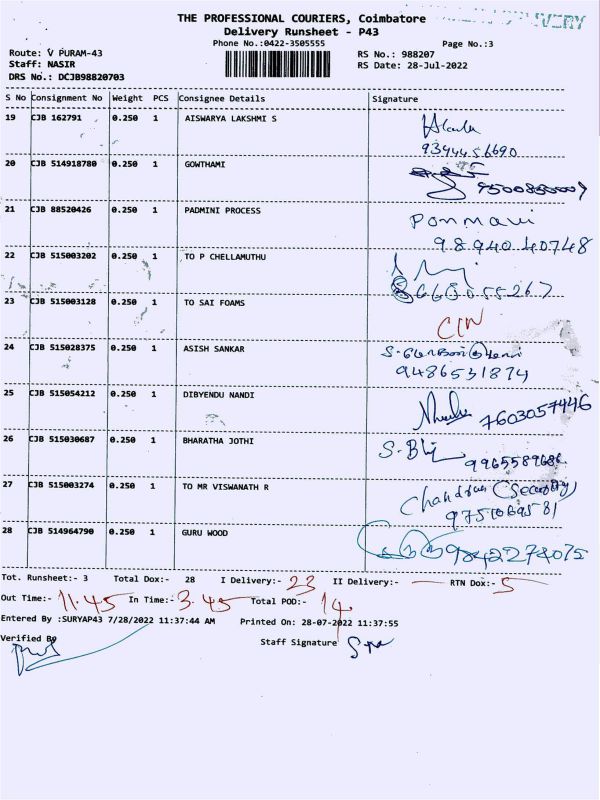 THE PROFESSIONAL COURIERS, Coimbatore
Delivery Runsheet - P43
Phone No.:0422-3505555
Page No.:3
Route: V PURAM-43
RS No.: 988207
Staff: NASIR
RS Date: 28-Jul-2022
DRS No.: DCJB98820703
S No Consignment No Weight PCS Consignee Details Signature
19 CJB 162791 0.250 1 AISWARYA LAKSHMI S
9344456690
20 CJB 514918780 0.250 1 GOWTHAMI
21 CJB 88520426 0.250 1 PADMINI PROCESS Ponmani
98940 40748
22 CJB 515003202 0.250 1 TO P CHELLAMUTHU
8668055267
23 CJB 515003128 0.250 1 TO SAI FOAMS
24 CJB 515028375 0.250 1 ASISH SANKAR
9486531874
25 CJB 515054212 0.250 1 DIBYENDU NANDI 7603057446
26 CJB 515030687 0.250 1 BHARATHA JOTHI
9965589686
27 CJB 515003274 0.250 1 TO MR VISWANATH R Chandran (Security)
28 CJB 514964790 0.250 1 GURU WOOD 9842274075
Tot. Runsheet:- 3 Total Dox:- 28 I Delivery:- 23 II Delivery:- — RTN Dox:- 5
Out Time:- 11.45 In Time:- 3.45 Total POD:- 14
Entered By :SURYAP43 7/28/2022 11:37:44 AM Printed On: 28-07-2022 11:37:55
Verified By Staff Signature